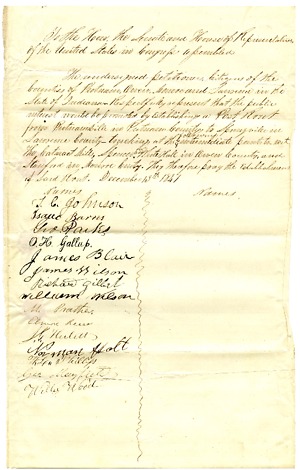 To the Hon. the Senate and House of Representatives
of the United States in Congress assembled
The undersigned petitioners citizens of the
Counties of Putnam, Owen, Monroe and Lawrence in the
State of Indiana Respectfully represent that the public
interest would be promoted by establishing a Post Rout
from Putnamville in Putnam County to Springville in
Lawrence County
Spencer, White Hall in Owen County, and
Stanford in Monroe County. They therefore pray the establishment
of said Rout. December 13th 1841
Names Names
T. C. Johnson
Isaac Barns
Geo Parks
O. H. Gallup.
James Blair
James Wilson
Richard Gillet
William Wilson
M.
Norman Holt
Willis Wood